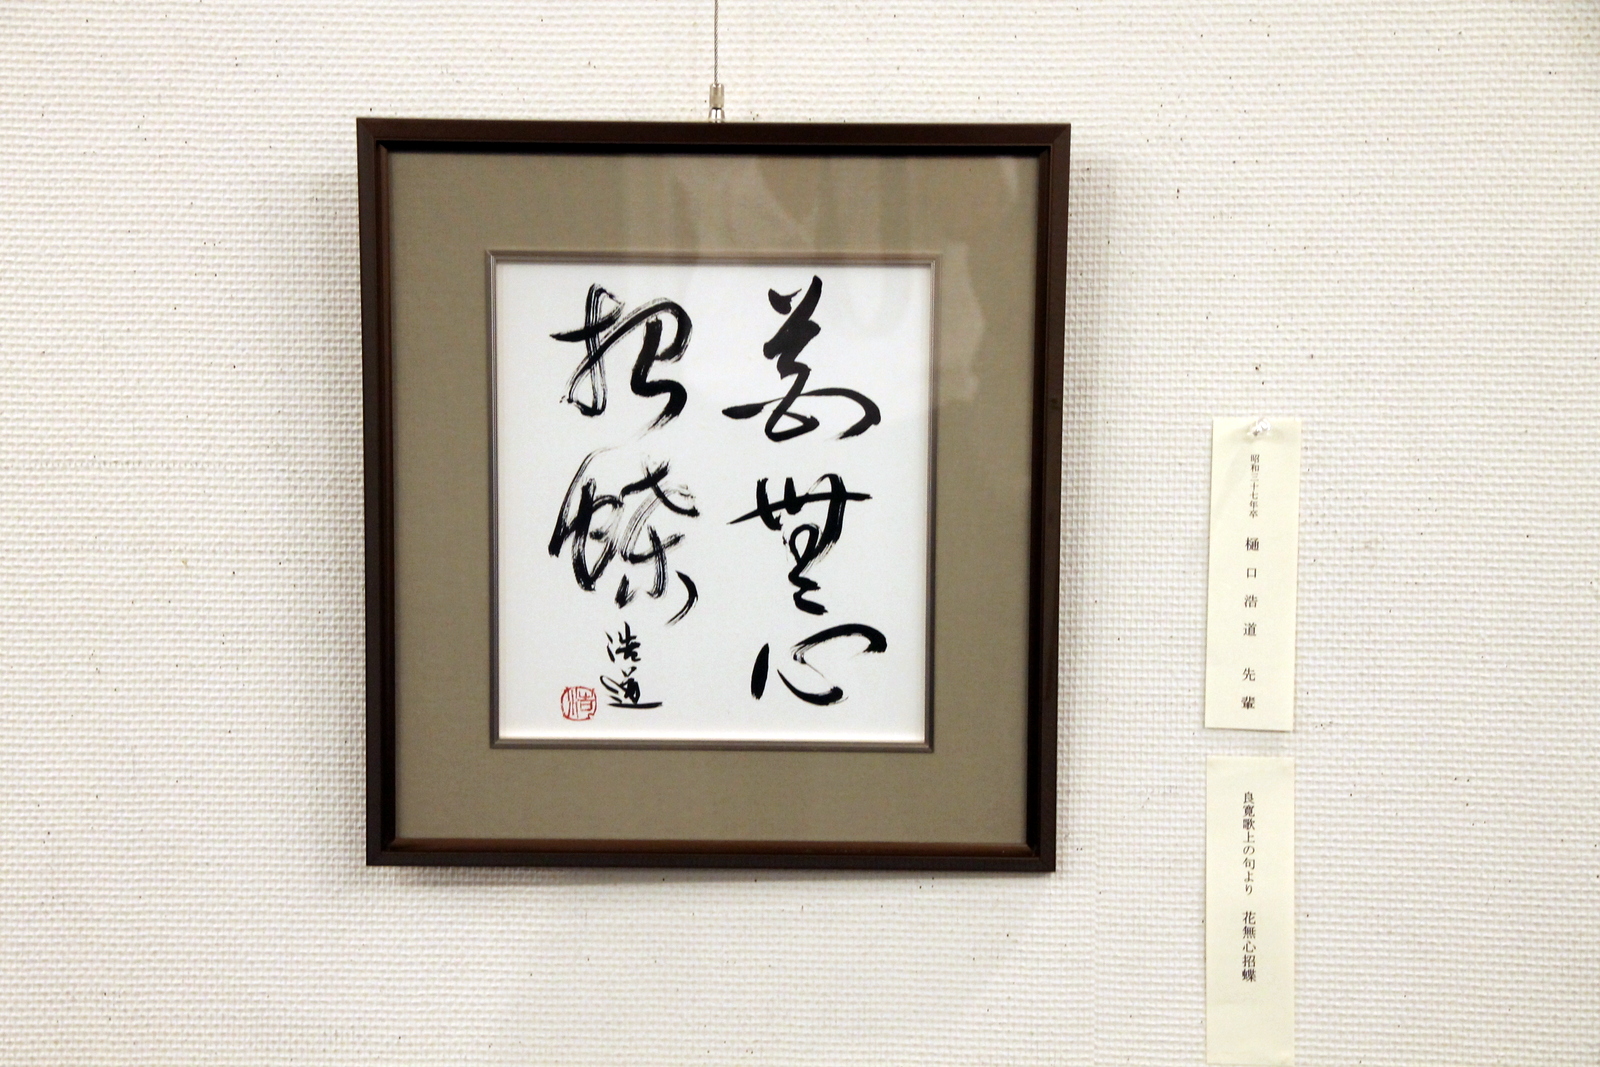 花無心
招蝶
浩道
浩
昭和三十七年卒 樋口浩道 先輩
良寛歌上の句より 花無心招蝶